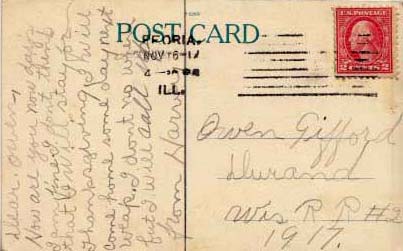 POST CARD
PEORIA,
NOV 16 17
ILL.
U.S. POSTAGE
2 CENTS 2
Dear. Owen,
Now are you now days.
I am fine. I dont think
that I will stay for
thanksgiving. I will
come home some day next
week. I dont no why
but I will call
from Harv
Owen Gifford
Durand
Wis R R #2
1917